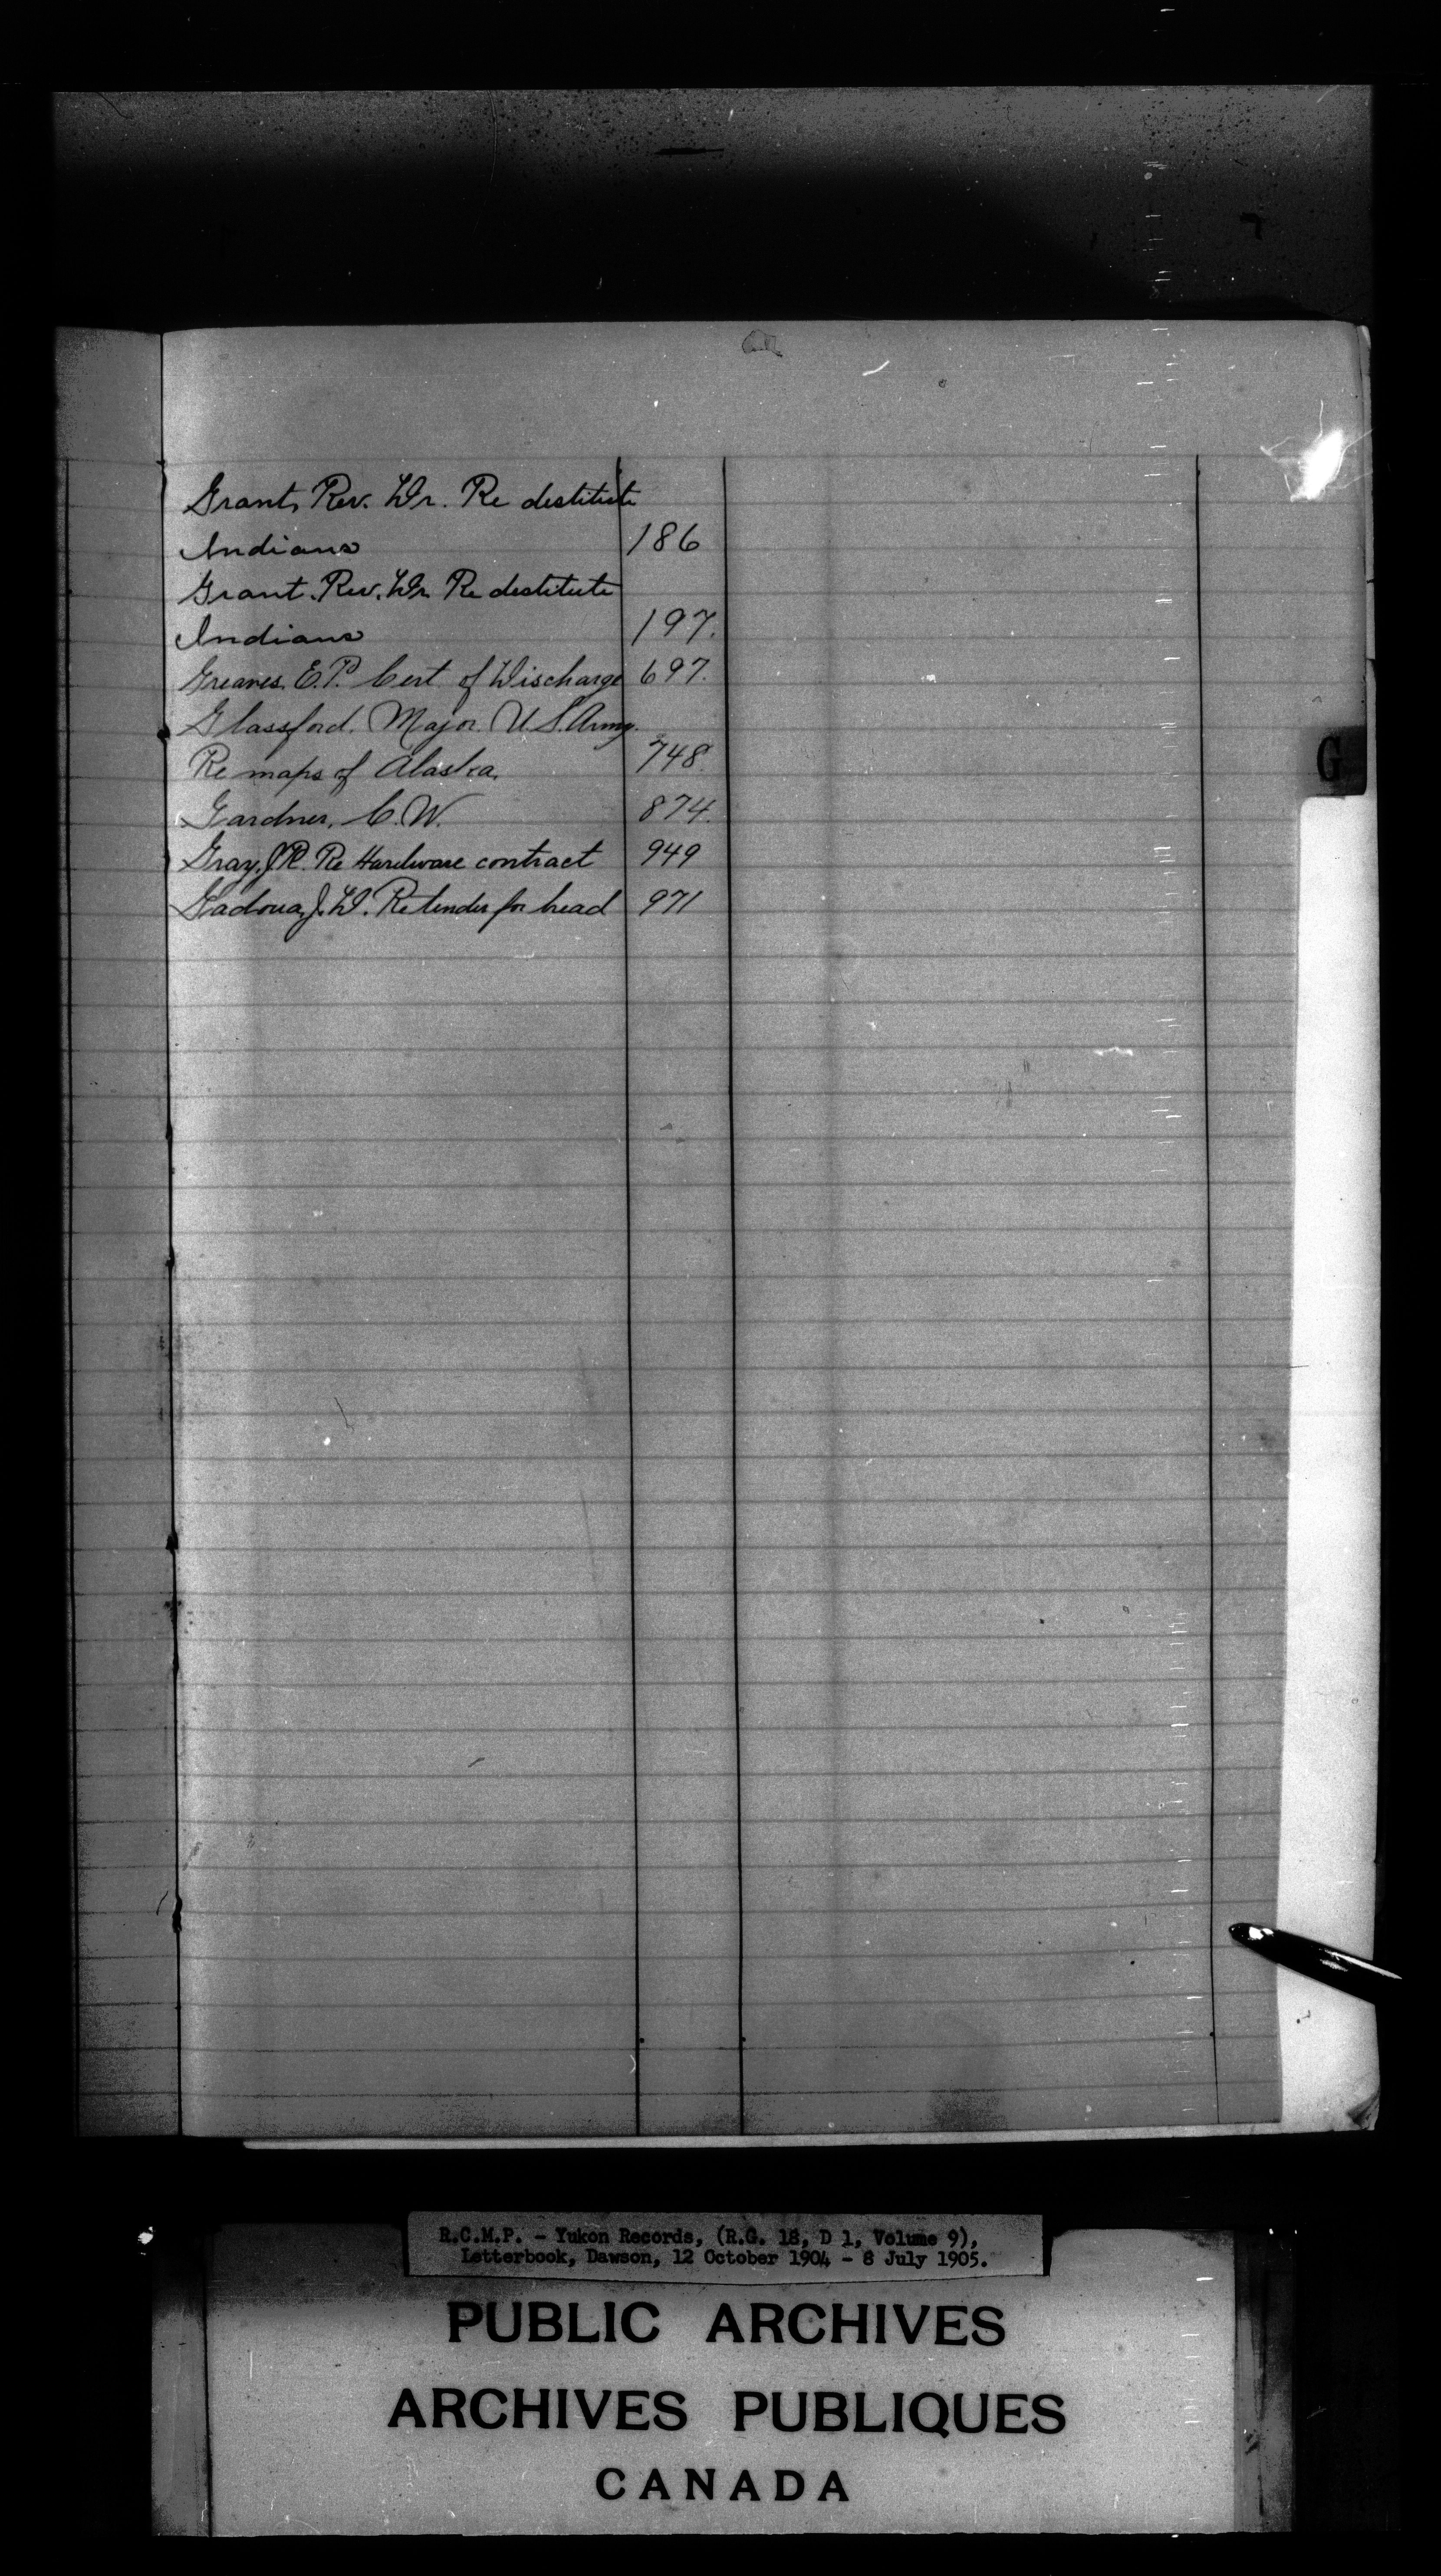 Grant, Rev. Dr. Re destitute
Indians 186
Grant. Rev. Dr. Re destitute
Indians 197.
Greaves. E.P. Cert of Discharge 697.
Glassford. Major. U.S. Army.
Re maps of Alaska. 748.
Gardner, C.W. 874.
Gray, J.P. Re Hardware contract 949
Gadoua, J. D. Re tender for bread 971
G
R.C.M.P. - Yukon Records, (R.G. 18, D 1, Volume 9),
Letterbook, Dawson, 12 October 1904 - 8 July 1905.
PUBLIC ARCHIVES
ARCHIVES PUBLIQUES
CANADA